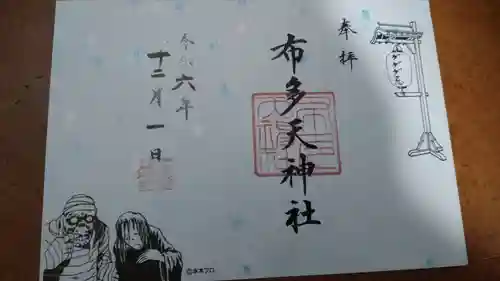 奉拝
布多天神社
令和六年
十二月一日
ゲゲゲ
©水木プロ